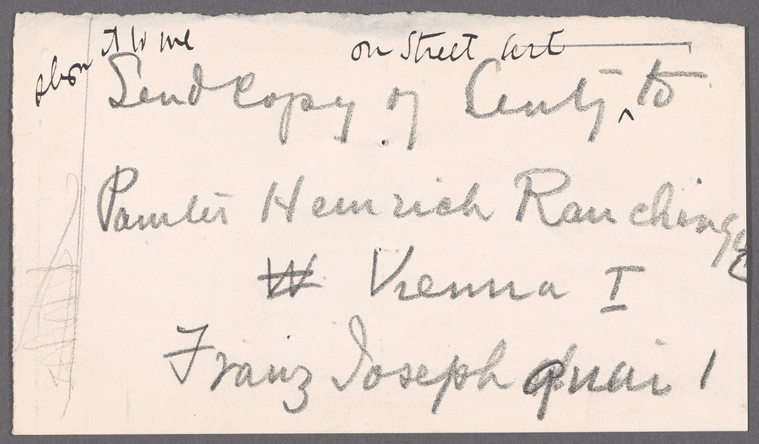 on Street Art
Send copy of Century to
Painter Heinrich Rauchinger
W Vienna I
Franz Joseph Quai 1